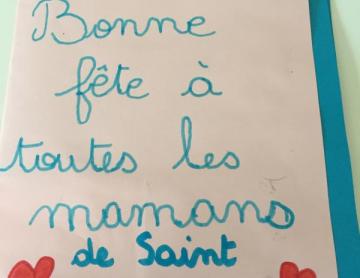 Bonne
fête à
toutes les
mamans
de Saint